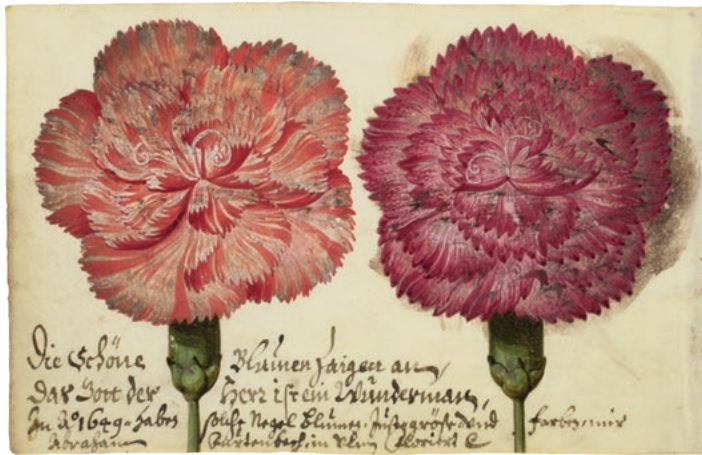 Die Schöne Blumen zaigen an,
Das Gott der Herr ist ein Wunderman,
Im Aº 1649 haben solche Negel Blumen, Just größe vnd farben, mir
Abraham Gartenbech, in Vlm floriert